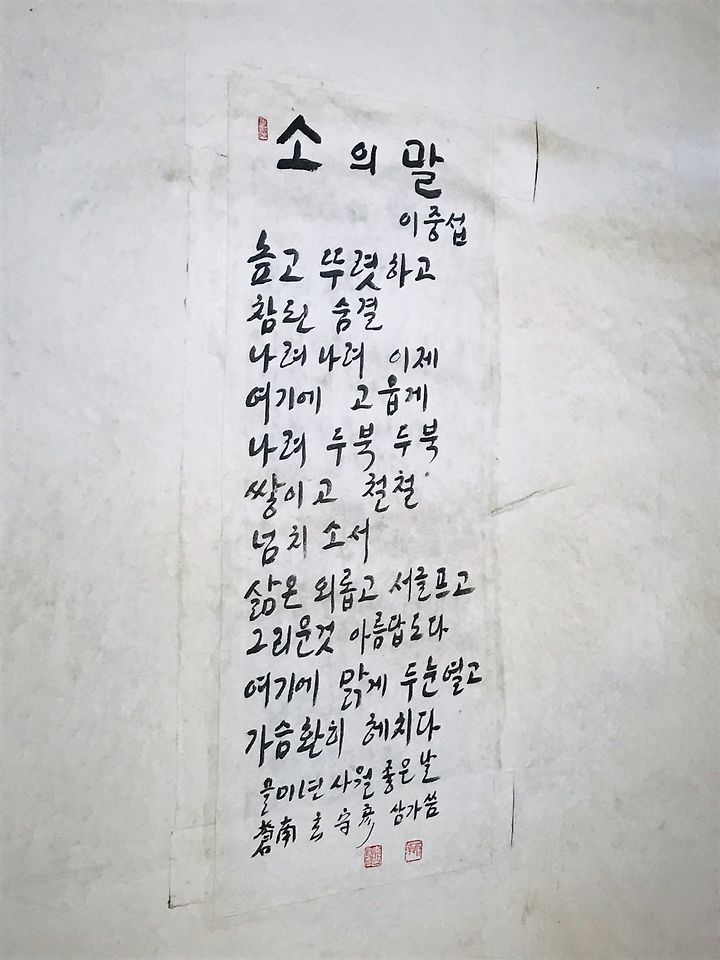 소의 말
이중섭
높고 뚜렷하고
참된 숨결
나려나려 이제
여기에 고웁게
나려 두북 두북
쌓이고 철철
넘치소서
삶은 외롭고 서글프고
그리운것 아름답도다
여기에 맑게 두눈열고
가슴환히 헤치다
을미년 사월 좋은날
蒼南 玄 守彦 삼가씀